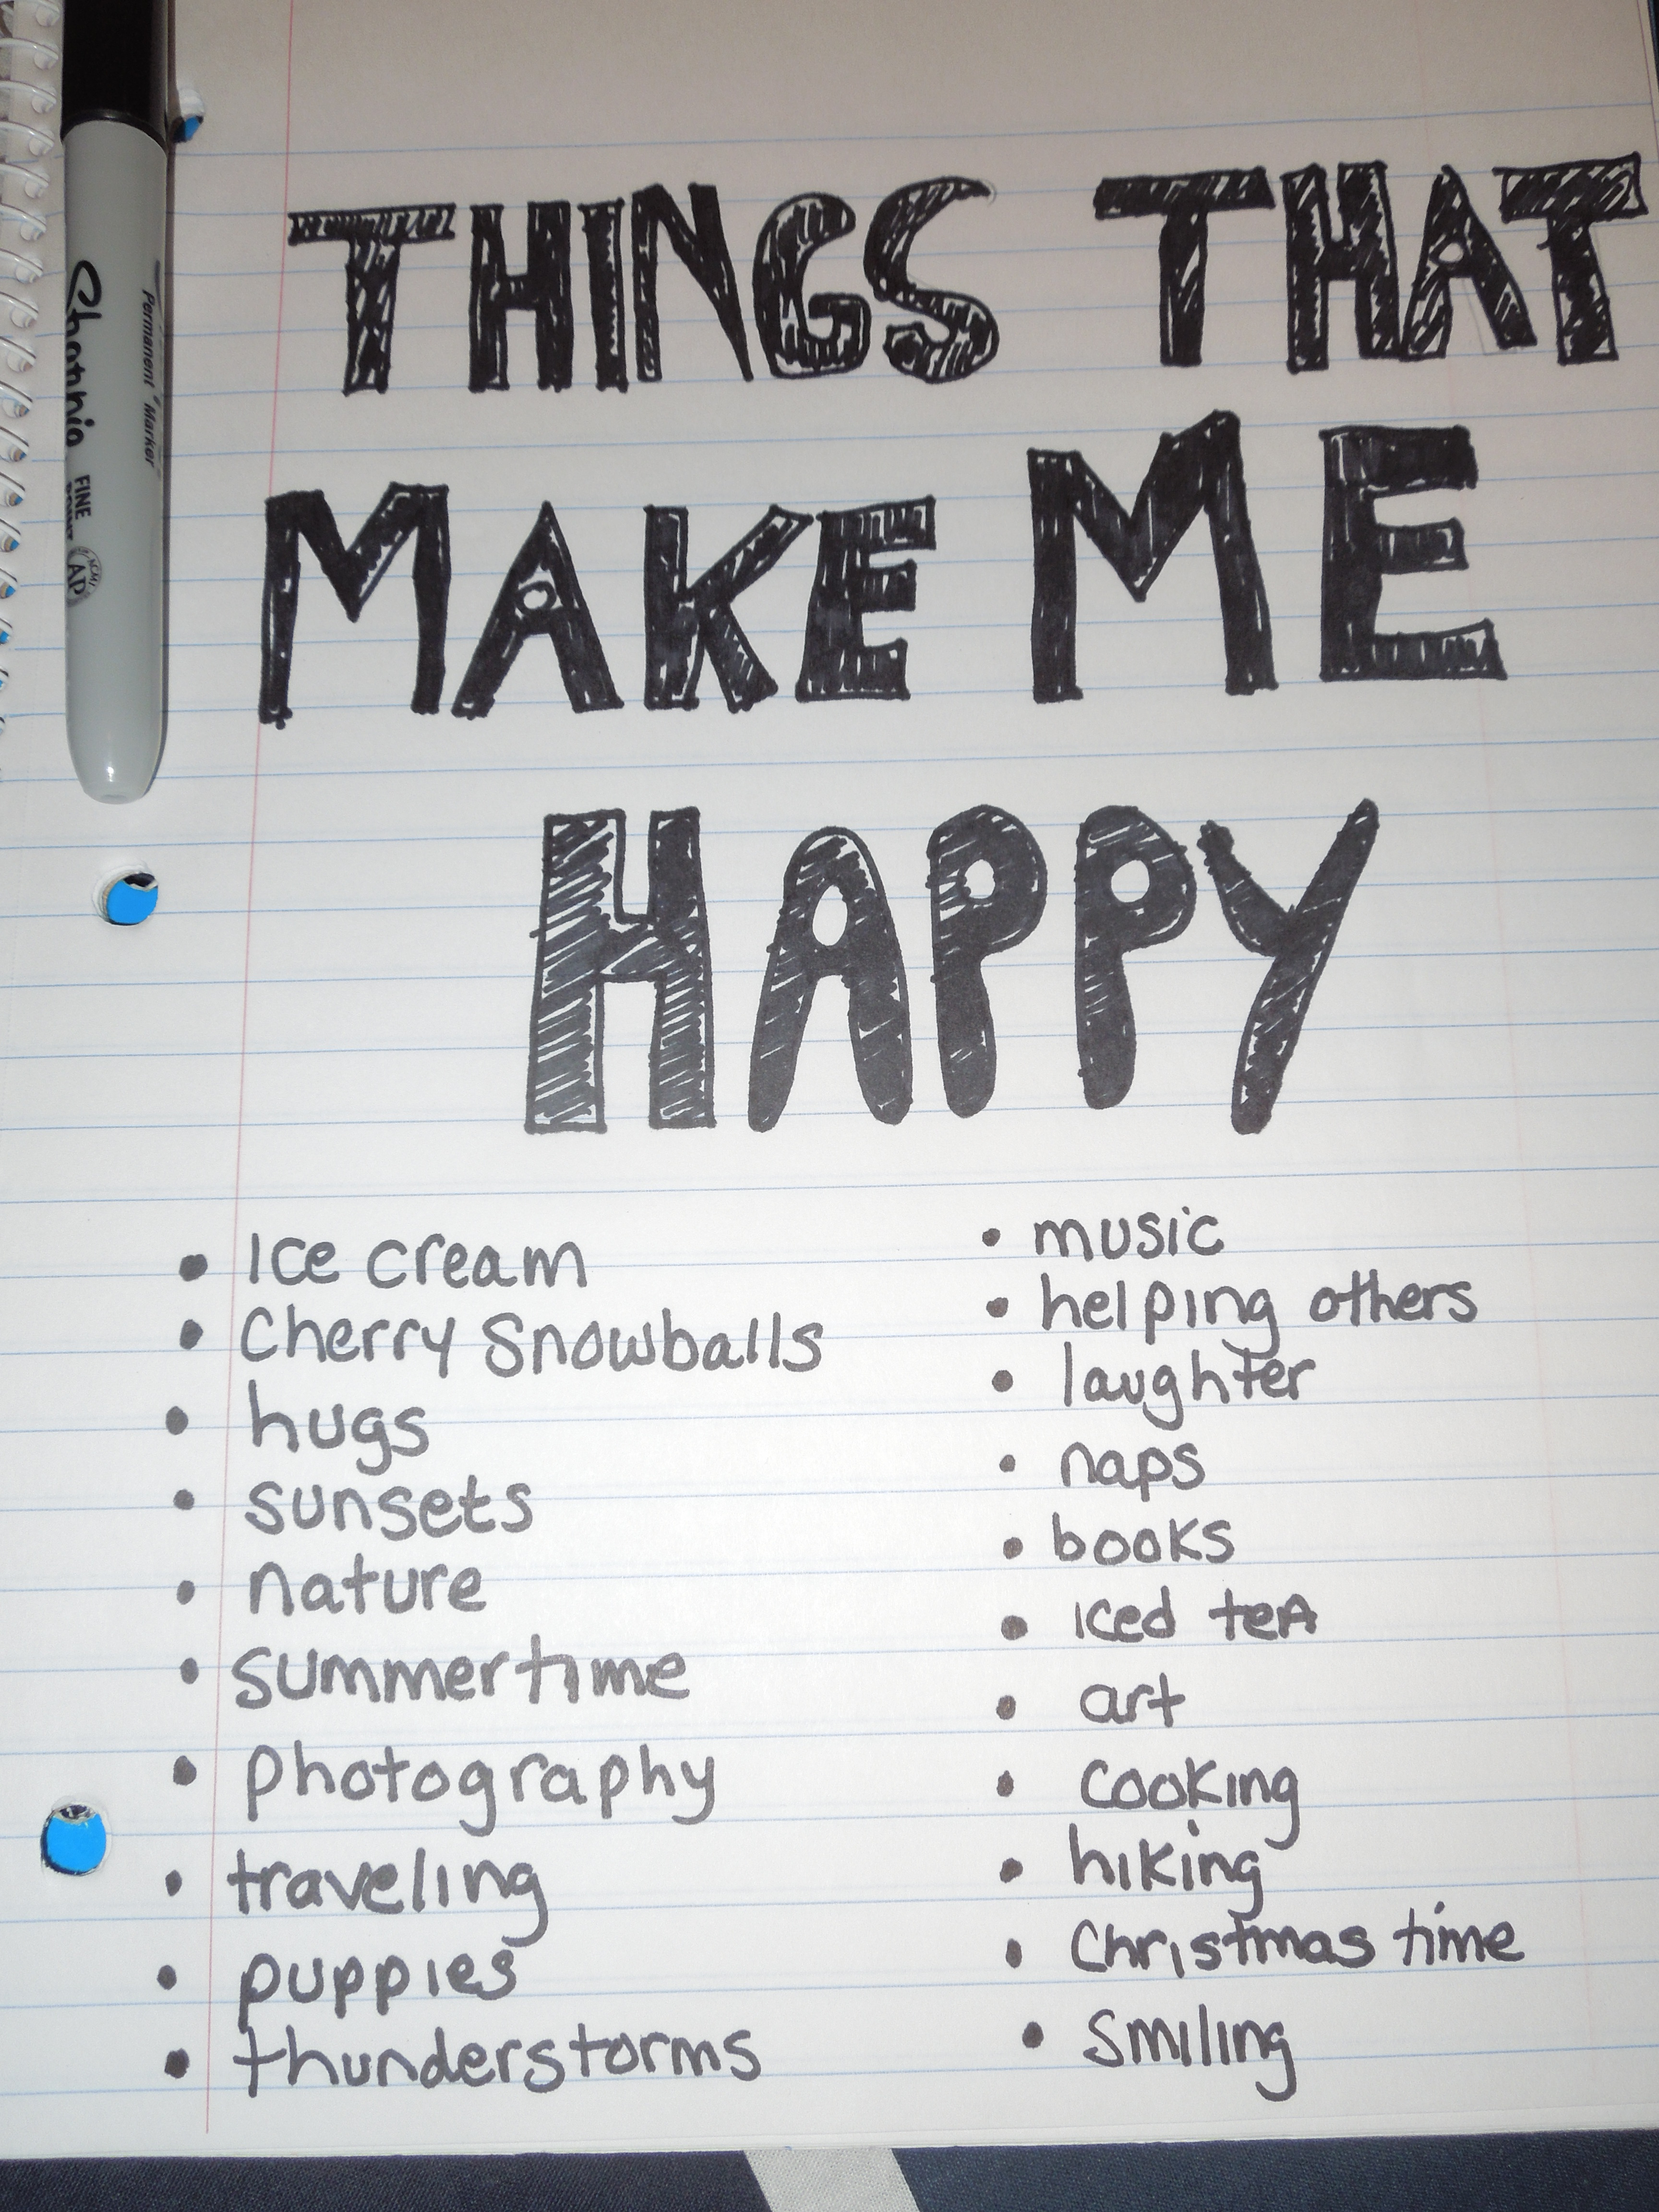 THINGS THAT
MAKE ME
HAPPY
Ice cream
Cherry Snowballs
hugs
sunsets
nature
summertime
photography
traveling
puppies
thunderstorms
music
helping others
laughter
naps
books
iced teA
art
cooking
hiking
Christmas time
smiling
Permanent Marker
FINE
AP